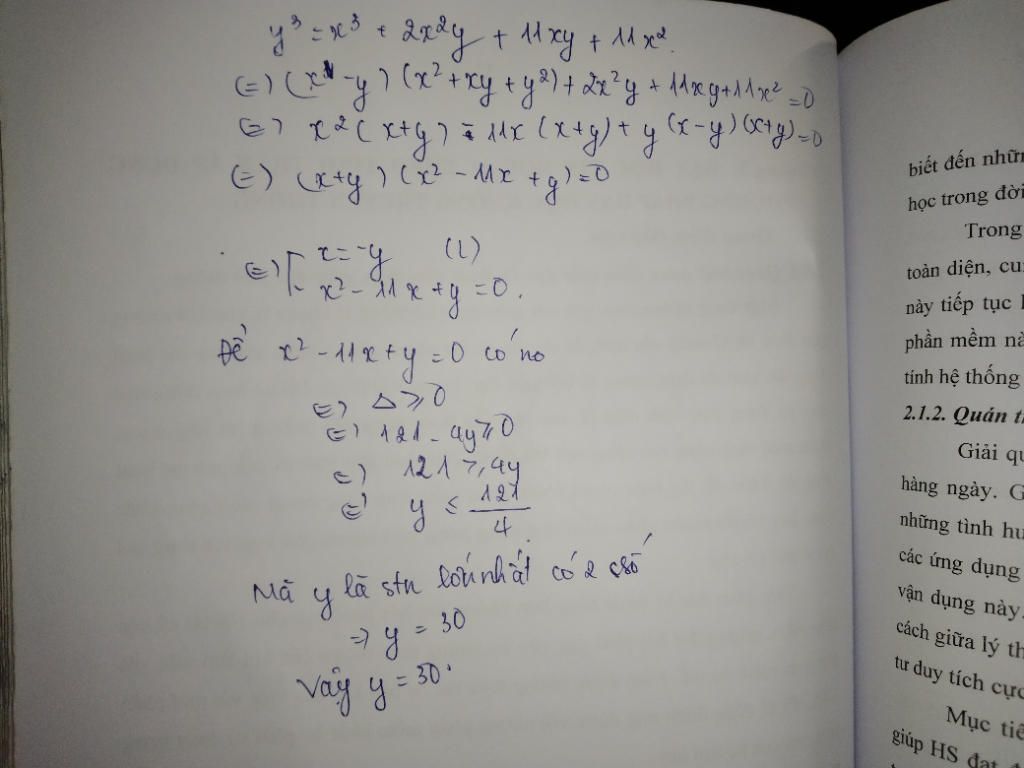 y³ = x³ + 2x²y + 11xy + 11x².
(=) (x - y) (x² + xy + y²) + 2x²y + 11xy + 11x² = 0
(=) x² (x+y) - 11x (x+y) + y (x-y) (x+y) = 0
(=) (x+y) (x² - 11x + y) = 0
(=) [ x = -y (l)
x² - 11x + y = 0.
Để x² - 11x + y = 0 có no
(=) Δ ≥ 0
(=) 121 - 4y ≥ 0
(=) 121 ≥ 4y
(=) y ≤ 121/4
Mà y là stn lớn nhất có 2 csố
=> y = 30
Vậy y = 30.
biết đến nhữn
học trong đời
Trong
toàn diện, cu
này tiếp tục
phần mềm nà
tính hệ thống
2.1.2. Quán t
Giải qu
hàng ngày. G
những tình hu
các ứng dụng
vận dụng này.
cách giữa lý th
tư duy tích cực
Mục tiê
giúp HS đạt